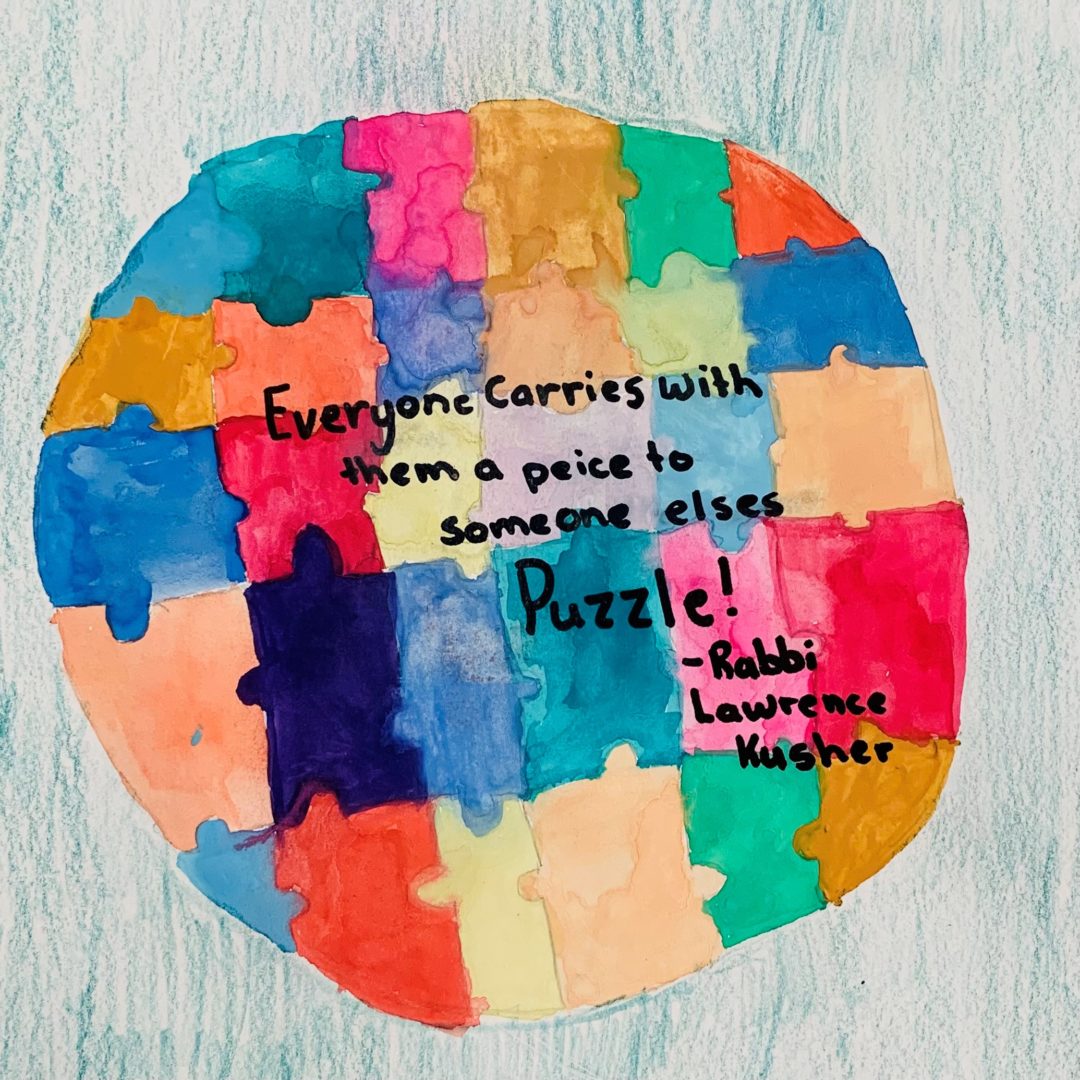 Everyone Carries with
them a peice to
someone elses
Puzzle!
-Rabbi
Lawrence
Kusher